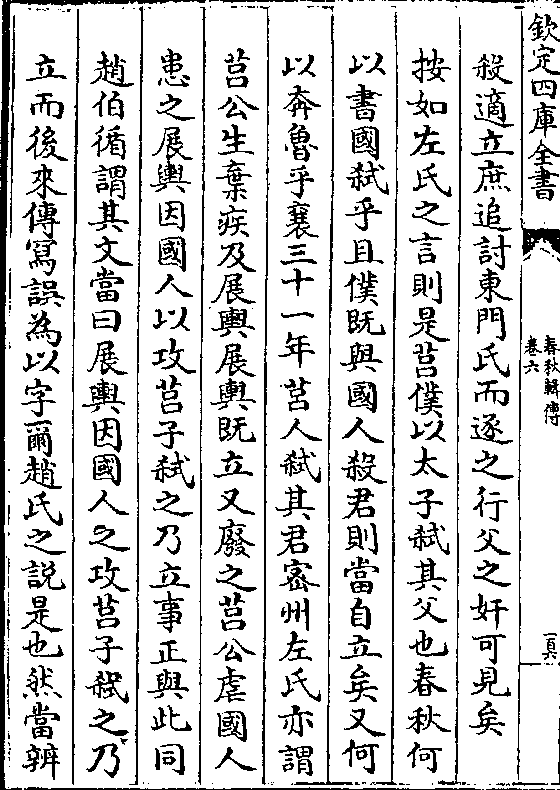 欽定四庫全書
春秋輯傳
卷六
頁六
殺適立庶追討東門氏而逐之行父之奸可見矣
按如左氏之言則是莒僕以太子弒其父也春秋何
以書國弒乎且僕既與國人殺君則當自立矣又何
以奔魯乎襄三十一年莒人弒其君密州左氏亦謂
莒公生棄疾及展輿展輿既立又廢之莒公虐國人
患之展輿因國人以攻莒子弒之乃立事正與此同
趙伯循謂其文當曰展輿因國人之攻莒子弒之乃
立而後來傳寫誤為以字爾趙氏之説是也然當辨